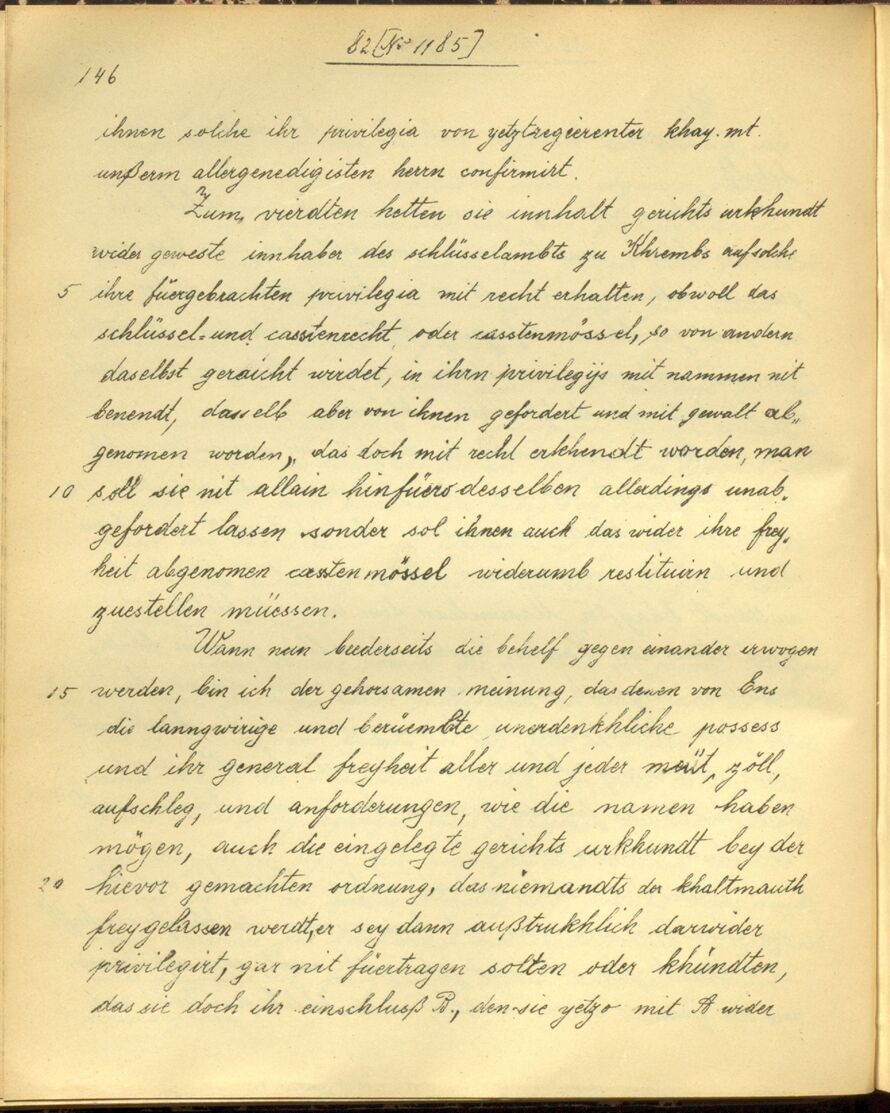 82 [No 1185]
146
ihnen solche ihr privilegia von yetztregierenter khay. mt.
unßerm allergenedigisten herrn confirmirt.
Zum vierdten hetten sie innhalt gerichts urkhundt
wider geweste innhaber des schlüsselambts zu Khrembs auf solche
5 ihre füergebrachten privilegia mit recht erhalten, obwoll das
schlüssel- und casstenrecht oder casstenmössel, so von andern
daselbst geraicht wirdet, in ihrn privilegijs mit nammen nit
benendt, dasselb aber von ihnen gefordert und mit gewalt ab„
genomen worden, das doch mit recht erkhendt worden, man
10 soll sie nit allain hinfüero desselben allerdings unab„
gefordert lassen sonder sol ihnen auch das wider ihre frey„
heit abgenomen casstenmössel widerumb restituirn und
zuestellen müessen.
Wann nun bederseits die behelf gegen einander erwogen
15 werden, bin ich der gehorsamen meinung, das denen von Ens
die lanngwirige und berüembte unerdenkhliche possess
und ihr general freyheit aller und jeder meüt, zöll,
aufschleg, und anforderungen, wie die namen haben
mögen, auch die eingelegte gerichts urkhundt bey der
20 hievor gemachten ordnung, das niemandts der khaltmauth
freygelassen werdt, er sey dann außtrukhlich darwider
privilegirt, gar nit füertragen solten oder khündten,
das sie doch ihr einschluß B., den sie yetzo mit A wider